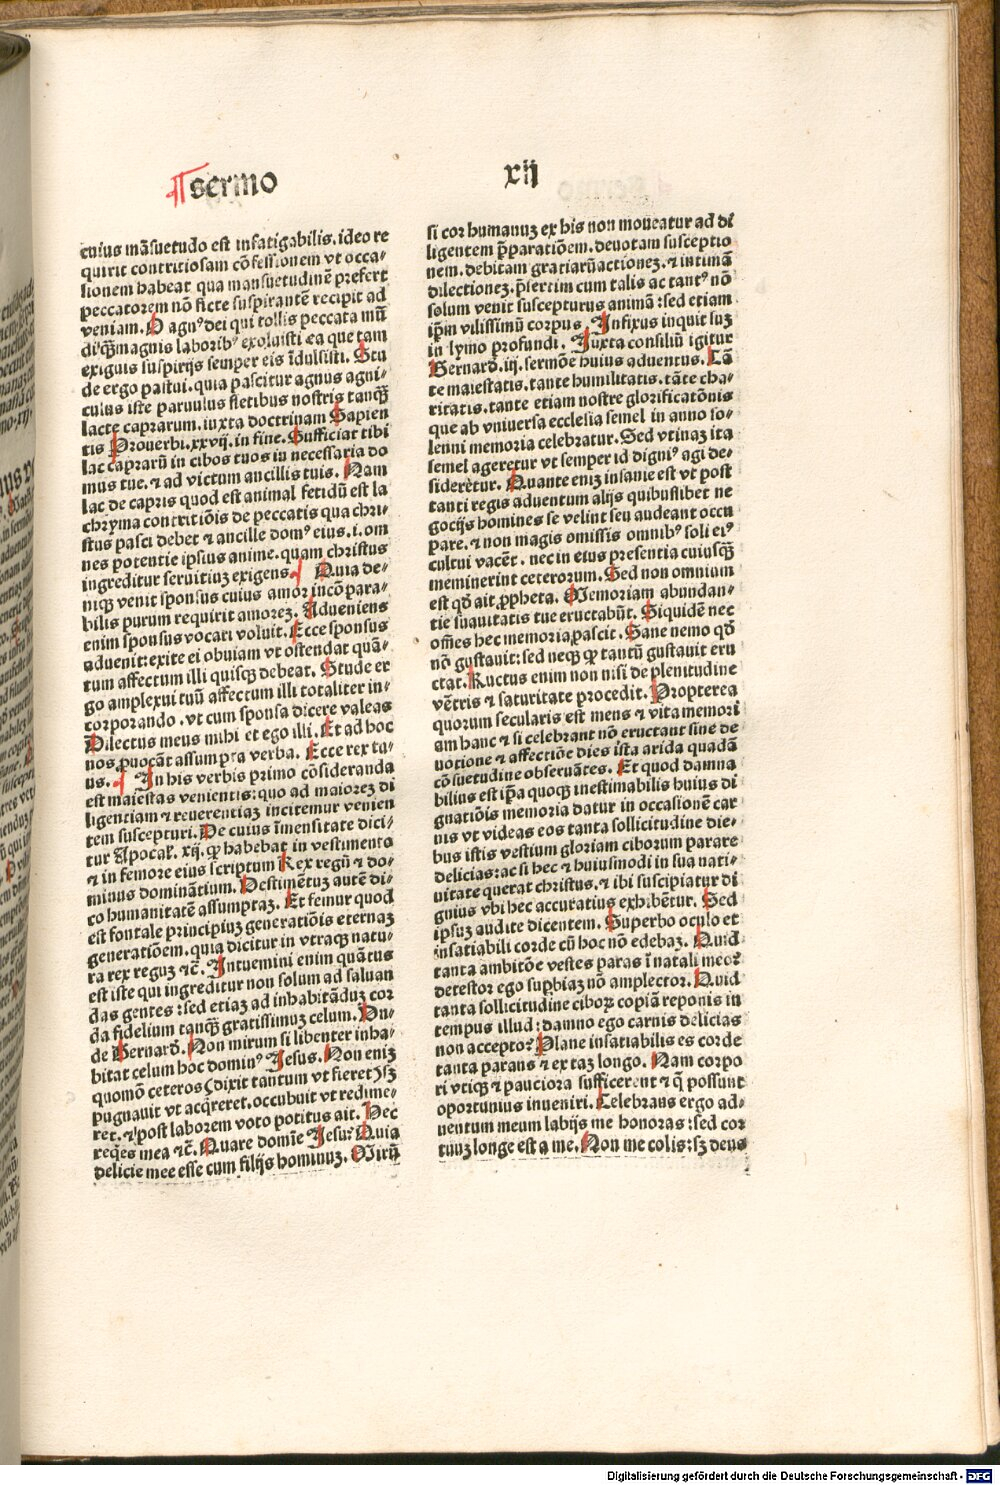 ¶ sermo
xij
cuius mãsuetudo est infatigabilis. ideo re
quirit contritiosam cõfessionem vt occa-
sionem habeat qua mansuetudinẽ prefert
peccatorem nõ ficte suspirantẽ recipit ad
veniam. O agnꝰ dei qui tollis peccata mũ
di/q̃ꝫ magnis laboribꝰ exoluisti ea que tam
exiguis suspirijs semper eis ĩdulsisti. Stu
de ergo pastui. quia pascitur agnus agni-
culus iste paruulus fletibus nostris tanq̃ꝫ
lacte caprarum. iuxta doctrinam Sapien
tis Prouerbi. xxvij. in fine. Sufficiat tibi
lac caprarũ in cibos tuos in necessaria do
mus tue. ⁊ ad victum ancillis tuis. Nam
lac de capris quod est animal fetidũ est la
chryma contritiõis de peccatis qua chri-
stus pasci debet ⁊ ancille domꝰ eius. i. om
nes potentie ipsius anime. quam christus
ingreditur seruitiuꝫ exigens ¶ Quia de-
niqꝫ venit sponsus cuius amor incõpara-
bilis purum requirit amoreꝫ. Adueniens
enim sponsus vocari voluit. Ecce sponsus
aduenit: exite ei obuiam vt ostendat quã-
tum affectum illi quisqꝫ debeat. Stude er
go amplexui tuũ affectum illi totaliter in-
corporando. vt cum sponsa dicere valeas
Dilectus meus mihi et ego illi. Et ad hoc
nos ꝓuocãt assumpta verba. Ecce rex tu-
us. ¶ In his verbis primo cõsideranda
est maiestas venientis: quo ad maioreꝫ di
ligentiam ⁊ reuerentiaꝫ incitemur venien
tem suscepturi. De cuius ĩmensitate dici-
tur Apocaꝉ. xij. ꝙ habebat in vestimento
⁊ in femore eius scriptum Rex regũ ⁊ do-
minus dominãtium. Uestimẽtuꝫ autẽ di-
co humanitatẽ assumptaꝫ. Et femur quod
est fontale principiuꝫ generatiõis eternaꝫ
generatiõem. quia dicitur in vtraqꝫ natu-
ra rex reguꝫ ⁊c̃. Intuemini enim quãtus
est iste qui ingreditur non solum ad saluan
das gentes: sed etiaꝫ ad inhabitãduꝫ cor
da fidelium tanq̃ꝫ gratissimuꝫ celum. Un-
de Bernard̃. Non mirum si libenter inha-
bitat celum hoc dominꝰ Jesus. Non eniꝫ
quomõ ceteros (dixit tantum vt fieret) sꝫ
pugnauit vt acq̃reret. occubuit vt redime-
ret. ⁊ post laborem voto potitus ait. Hec
reqẽs mea ⁊c̃. Quare domĩe Jesu? Quia
delicie mee esse cum filijs hominuꝫ. Mirũ
si cor humanuꝫ ex his non moueatur ad di
ligentem p̃paratiõem. deuotam susceptio
nem. debitam gratiarũ actioneꝫ. ⁊ intimã
dilectioneꝫ. p̃sertim cum talis ac tantꝰ nõ
solum venit suscepturus animã: sed etiam
ip̃m vilissimũ corpus. Infixus inquit suꝫ
in lymo profundi. Juxta consiliũ igitur
Bernard̃. iij. sermõe huius aduentus. Tã
te maiestatis. tante humilitatis. tãte cha-
ritatis. tante etiam nostre glorificatõnis
que ab vniuersa ecclesia semel in anno so-
lenni memoria celebratur. Sed vtinaꝫ ita
semel ageretur vt semper id digniꝰ agi de-
siderẽtur. Quante eniꝫ insanie est vt post
tanti regis aduentum alijs quibuslibet ne
gocijs homines se velint seu audeant occu
pare. ⁊ non magis omissis omnibꝰ soli eiꝰ
cultui vacẽt. nec in eius presentia cuiusq̃ꝫ
meminerint ceterorum. Sed non omnium
est qd̃ ait ꝓpheta. Memoriam abundan-
tie suauitatis tue eructabũt. Siquidẽ nec
om̃es hec memoria pascit. Sane nemo qd̃
nõ gustauit: sed neqꝫ ꝙ tantũ gustauit eru
ctat. Ructus enim non nisi de plenitudine
vẽtris ⁊ saturitate procedit. Propterea
quorum secularis est mens ⁊ vita memori
am hanc ⁊ si celebrant nõ eructant sine de
uotione ⁊ affectiõe dies ista arida quadã
cõsuetudine obseruãtes. Et quod damna
bilius est ip̃a quoqꝫ inestimabilis huius di
gnatiõis memoria datur in occasionẽ car
nis vt videas eos tanta sollicitudine die-
bus istis vestium gloriam ciborum parare
delicias: ac si hec ⁊ huiusmodi in sua nati-
uitate querat christus. ⁊ ibi suscipiatur di
gnius vbi hec accuratius exhibẽtur. Sed
ipsuꝫ audite dicentem. Superbo oculo et
insatiabili corde cũ hoc nõ edebaꝫ. Quid
tanta ambitõe vestes paras ĩ natali meo?
detestor ego suꝑbiaꝫ nõ amplector. Quid
tanta sollicitudine ciboꝝ copiã reponis in
tempus illud: damno ego carnis delicias
non accepto? Plane insatiabilis es corde
tanta parans ⁊ ex taꝫ longo. Nam corpo
ri vtiqꝫ ⁊ pauciora sufficerent ⁊ q̃ possunt
oportunius inueniri. Celebrans ergo ad-
uentum meum labijs me honoras: sed cor
tuuꝫ longe est a me. Non me colis: sꝫ deus
Digitalisierung gefördert durch die Deutsche Forschungsgemeinschaft - DFG